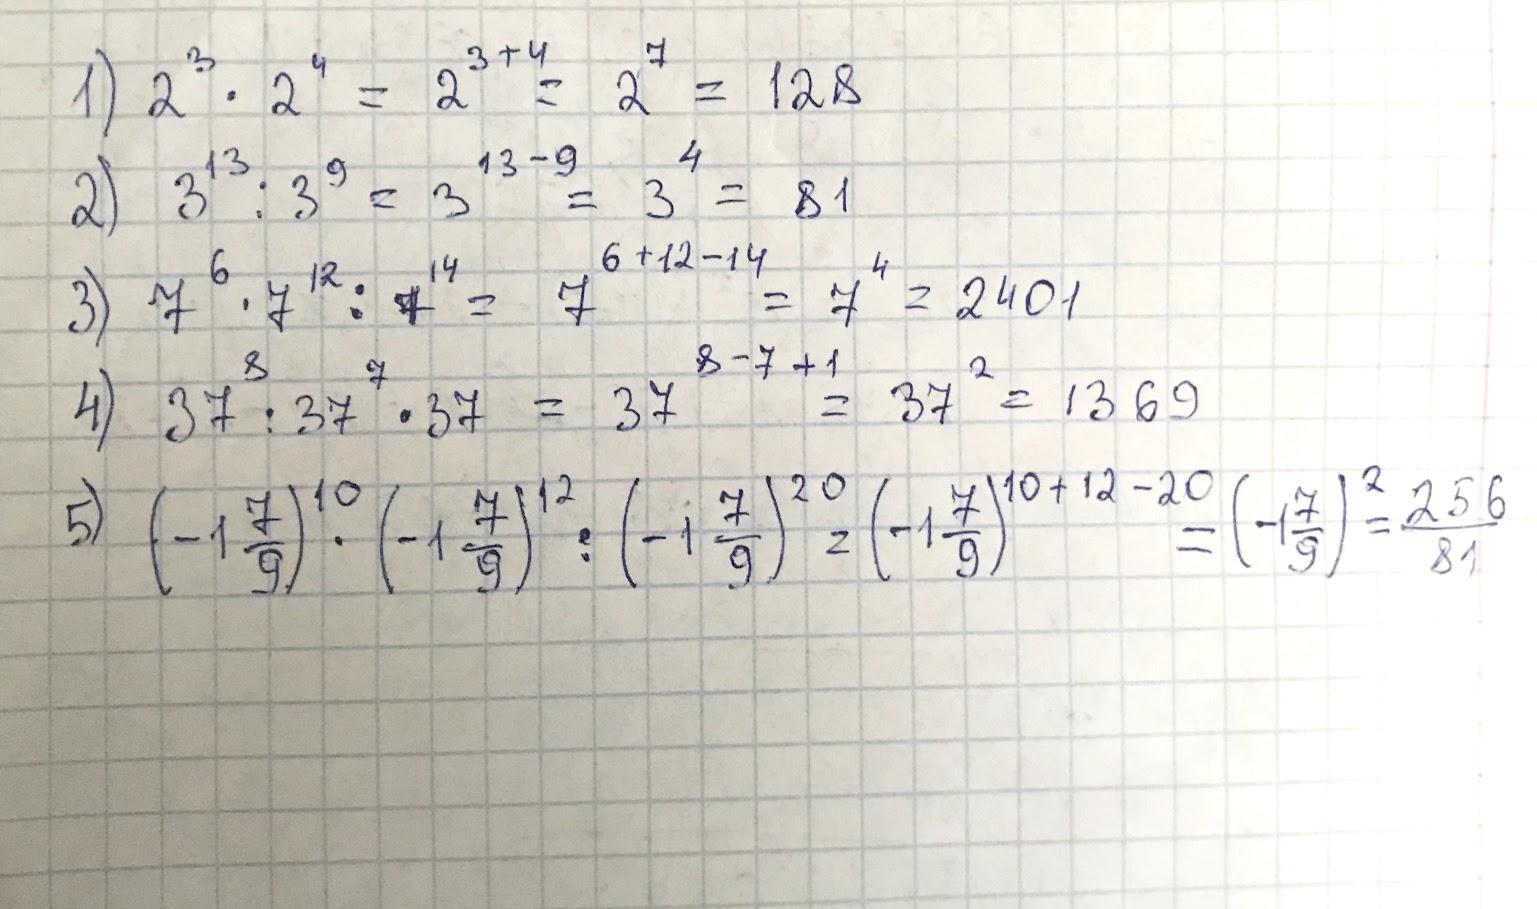 1) 2³ · 2⁴ = 2³⁺⁴ = 2⁷ = 128
2) 3¹³ : 3⁹ = 3¹³⁻⁹ = 3⁴ = 81
3) 7⁶ · 7¹² : 7¹⁴ = 7⁶⁺¹²⁻¹⁴ = 7⁴ = 2401
4) 37⁸ : 37⁷ · 37 = 37⁸⁻⁷⁺¹ = 37² = 1369
5) (-1 7/9)¹⁰ · (-1 7/9)¹² : (-1 7/9)²⁰ = (-1 7/9)¹⁰⁺¹²⁻²⁰ = (-1 7/9)² = 256/81